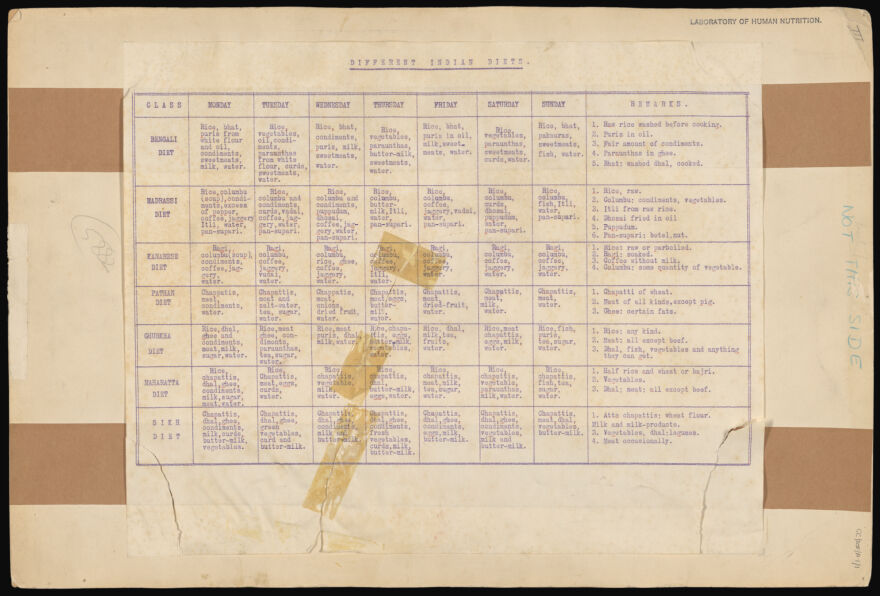 LABORATORY OF HUMAN NUTRITION.
III
DIFFERENT INDIAN DIETS.
CLASS MONDAY TUESDAY WEDNESDAY THURSDAY FRIDAY SATURDAY SUNDAY REMARKS.
BENGALI DIET
Rice, bhat,
puris from
white flour
and oil,
condiments,
sweetmeats,
milk, water.
Rice,
vegetables,
oil, condi-
ments,
paraunthas
from white
flour, curds,
sweetmeats,
water.
Rice, bhat,
condiments,
puris, milk,
sweetmeats,
water.
Rice,
vegetables,
paraunthas,
butter-milk,
sweetmeats,
water.
Rice, bhat,
puris in oil,
milk, sweet-
meats, water.
Rice,
vegetables,
paraunthas,
sweetmeats,
curds, water.
Rice, bhat,
pakouras,
sweetmeats,
fish, water.
1. Raw rice washed before cooking.
2. Puris in oil.
3. Fair amount of condiments.
4. Paraunthas in ghee.
5. Bhat: washed dhal, cooked.
MADRASSI DIET
Rice, columbu
(soup), condi-
ments, excess
of pepper,
coffee, jaggery
Itli, water,
pan-supari.
Rice,
columbu and
condiments,
curds, vadai,
coffee, jag-
gery, water,
pan-supari.
Rice,
columbu and
condiments,
pappudum,
Dhosai,
coffee, jag-
gery, water,
pan-supari.
Rice,
columbu,
butter-
milk, Itli,
water,
pan-supari.
Rice,
columbu,
coffee,
jaggery, vadai,
water,
pan-supari.
Rice,
columbu,
curds,
dhosai,
pappudum,
water,
pan-supari.
Rice,
columbu,
fish, Itli,
water,
pan-supari.
1. Rice, raw.
2. Columbu: condiments, vegetables.
3. Itli from raw rice.
4. Dhosai fried in oil
5. Pappudum.
6. Pan-supari: betel, nut.
KANARESE DIET
Ragi,
columbu (soup),
condiments,
coffee, jag-
gery,
water.
Ragi,
columbu,
coffee,
jaggery,
vadai,
water.
Ragi,
columbu,
rice, ghee,
coffee,
jaggery,
water.
Ragi,
columbu,
coffee,
jaggery,
Itli,
water.
Ragi,
columbu,
coffee,
jaggery,
water.
Ragi,
columbu,
coffee,
jaggery,
water.
Ragi,
columbu,
coffee,
jaggery,
water.
1. Rice: raw or parboiled.
2. Ragi: soaked.
3. Coffee without milk.
4. Columbu: some quantity of vegetable.
PATHAN DIET
Chappatis,
meat,
condiments,
water.
Chappatis,
meat and
salt-water,
tea, sugar,
water.
Chappatis,
meat,
onions,
dried fruit,
water.
Chappatis,
meat, eggs,
butter-
milk,
water.
Chappatis,
meat,
dried-fruit,
water.
Chappatis,
meat,
milk,
water.
Chappatis,
meat,
water.
1. Chappatti of wheat.
2. Meat of all kinds, except pig.
3. Ghee: certain fats.
GHURKHA DIET
Rice, dhal,
ghee and
condiments,
meat, milk,
sugar, water.
Rice, meat
ghee, con-
diments,
paraunthas,
tea, sugar,
water.
Rice, meat
puris, dhal
milk, water.
Rice, chapa-
tis, eggs,
butter-milk,
vegetables,
water.
Rice, dhal,
meat, tea,
fruits,
water.
Rice, meat
chappatis,
eggs, milk,
water.
Rice, fish,
puris,
tea, sugar,
water.
1. Rice: any kind.
2. Meat: all except beef.
3. Dhal, fish, vegetables and anything
they can get.
MAHARATTA DIET
Rice,
chappatis,
dhal, ghee,
condiments,
milk, sugar,
meat, water.
Rice,
Chappatis,
meat, eggs,
curds,
water.
Rice,
chapattis,
vegetable,
milk,
water.
Rice,
chapattis,
dhal,
butter-milk,
eggs, water.
Rice,
chapattis,
meat, milk,
tea, sugar,
water.
Rice,
chapattis,
vegetable,
paraunthas,
milk, water.
Rice,
chapattis,
fish, tea,
sugar,
water.
1. Half rice and wheat or bajri.
2. Vegetables.
3. Dhal; meat: all except beef.
SIKH DIET
Chapattis,
dhal, ghee,
condiments,
milk, curds,
butter-milk,
vegetables.
Chapattis,
dhal, ghee,
green
vegetables,
curd and
butter-milk.
Chapattis,
dhal, ghee,
condiments,
milk and
butter-milk.
Chapattis,
dhal, ghee,
condiments,
fresh
vegetables,
curds, milk,
butter-milk.
Chapattis,
dhal, ghee,
condiments,
eggs, milk,
butter-milk.
Chapattis,
dhal, ghee,
condiments,
vegetables,
milk and
butter-milk.
Chapattis,
meat, dhal,
vegetables,
butter-milk.
1. Atta chapattis: wheat flour.
Milk and milk-products.
3. Vegetables, dhal: legumes.
4. Meat occasionally.
NOT THIS SIDE